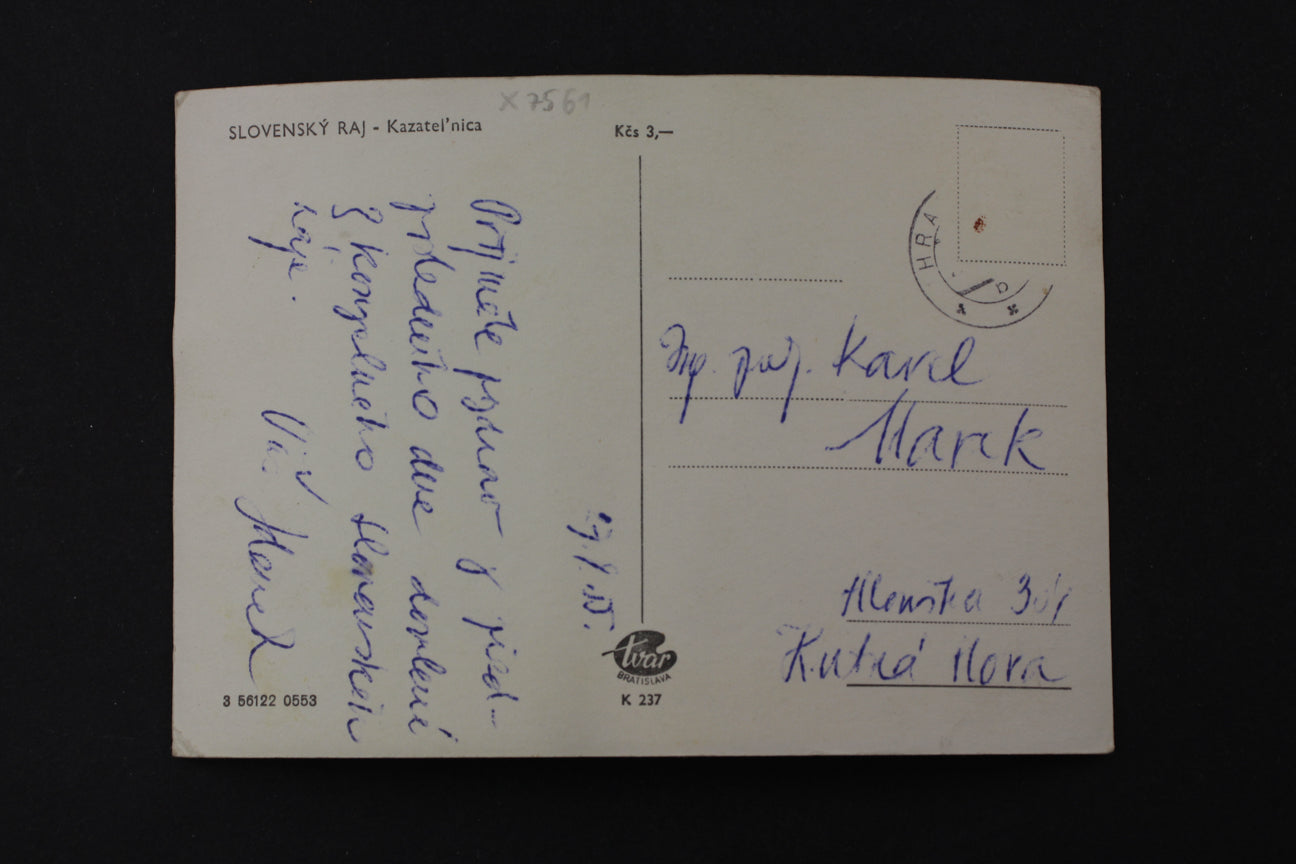 X 7561
SLOVENSKÝ RAJ - Kazateľnica
Kčs 3,—
Přijměte pozdrav z před-
posledního dne dovolené
z kouzelného Slovenského
ráje.
Váš
HRA
Ing. Karel
Marek
Kutná Hora
tvar
BRATISLAVA
K 237
3 56122 0553